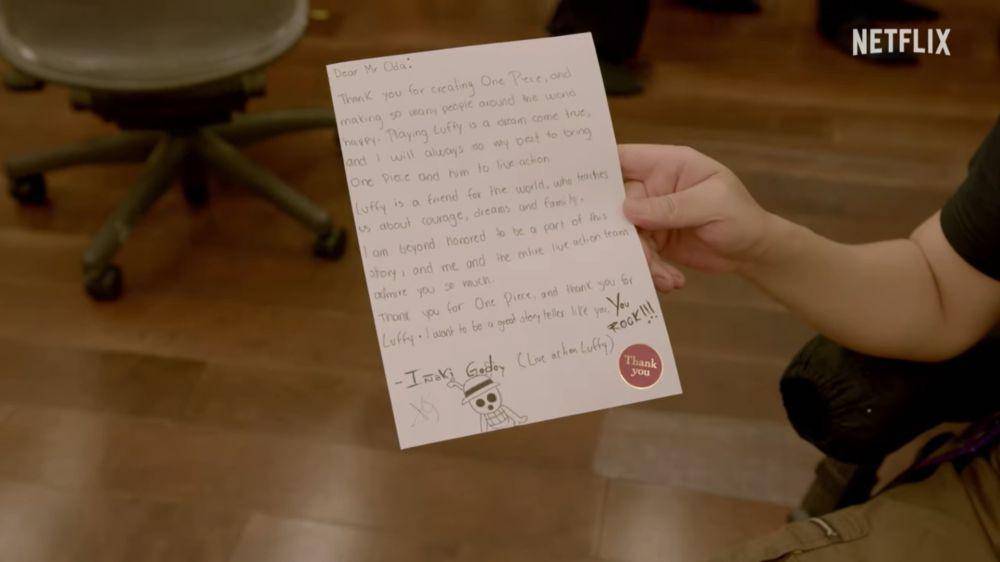 NETFLIX
Dear Mr Oda:
Thank you for creating One Piece, and
making so many people around the world
happy. Playing Luffy is a dream come true,
and I will always do my best to bring
One Piece and him to live action
Luffy is a friend for the world, who teaches
us about courage, dreams and family.
I am beyond honored to be a part of this
story, and me and the entire live action team
admire you so much.
Thank you for One Piece, and thank you for
Luffy. I want to be a great story teller like you. You
ROCK!!!
- Iñaki Godoy (Live action Luffy)
Thank
you